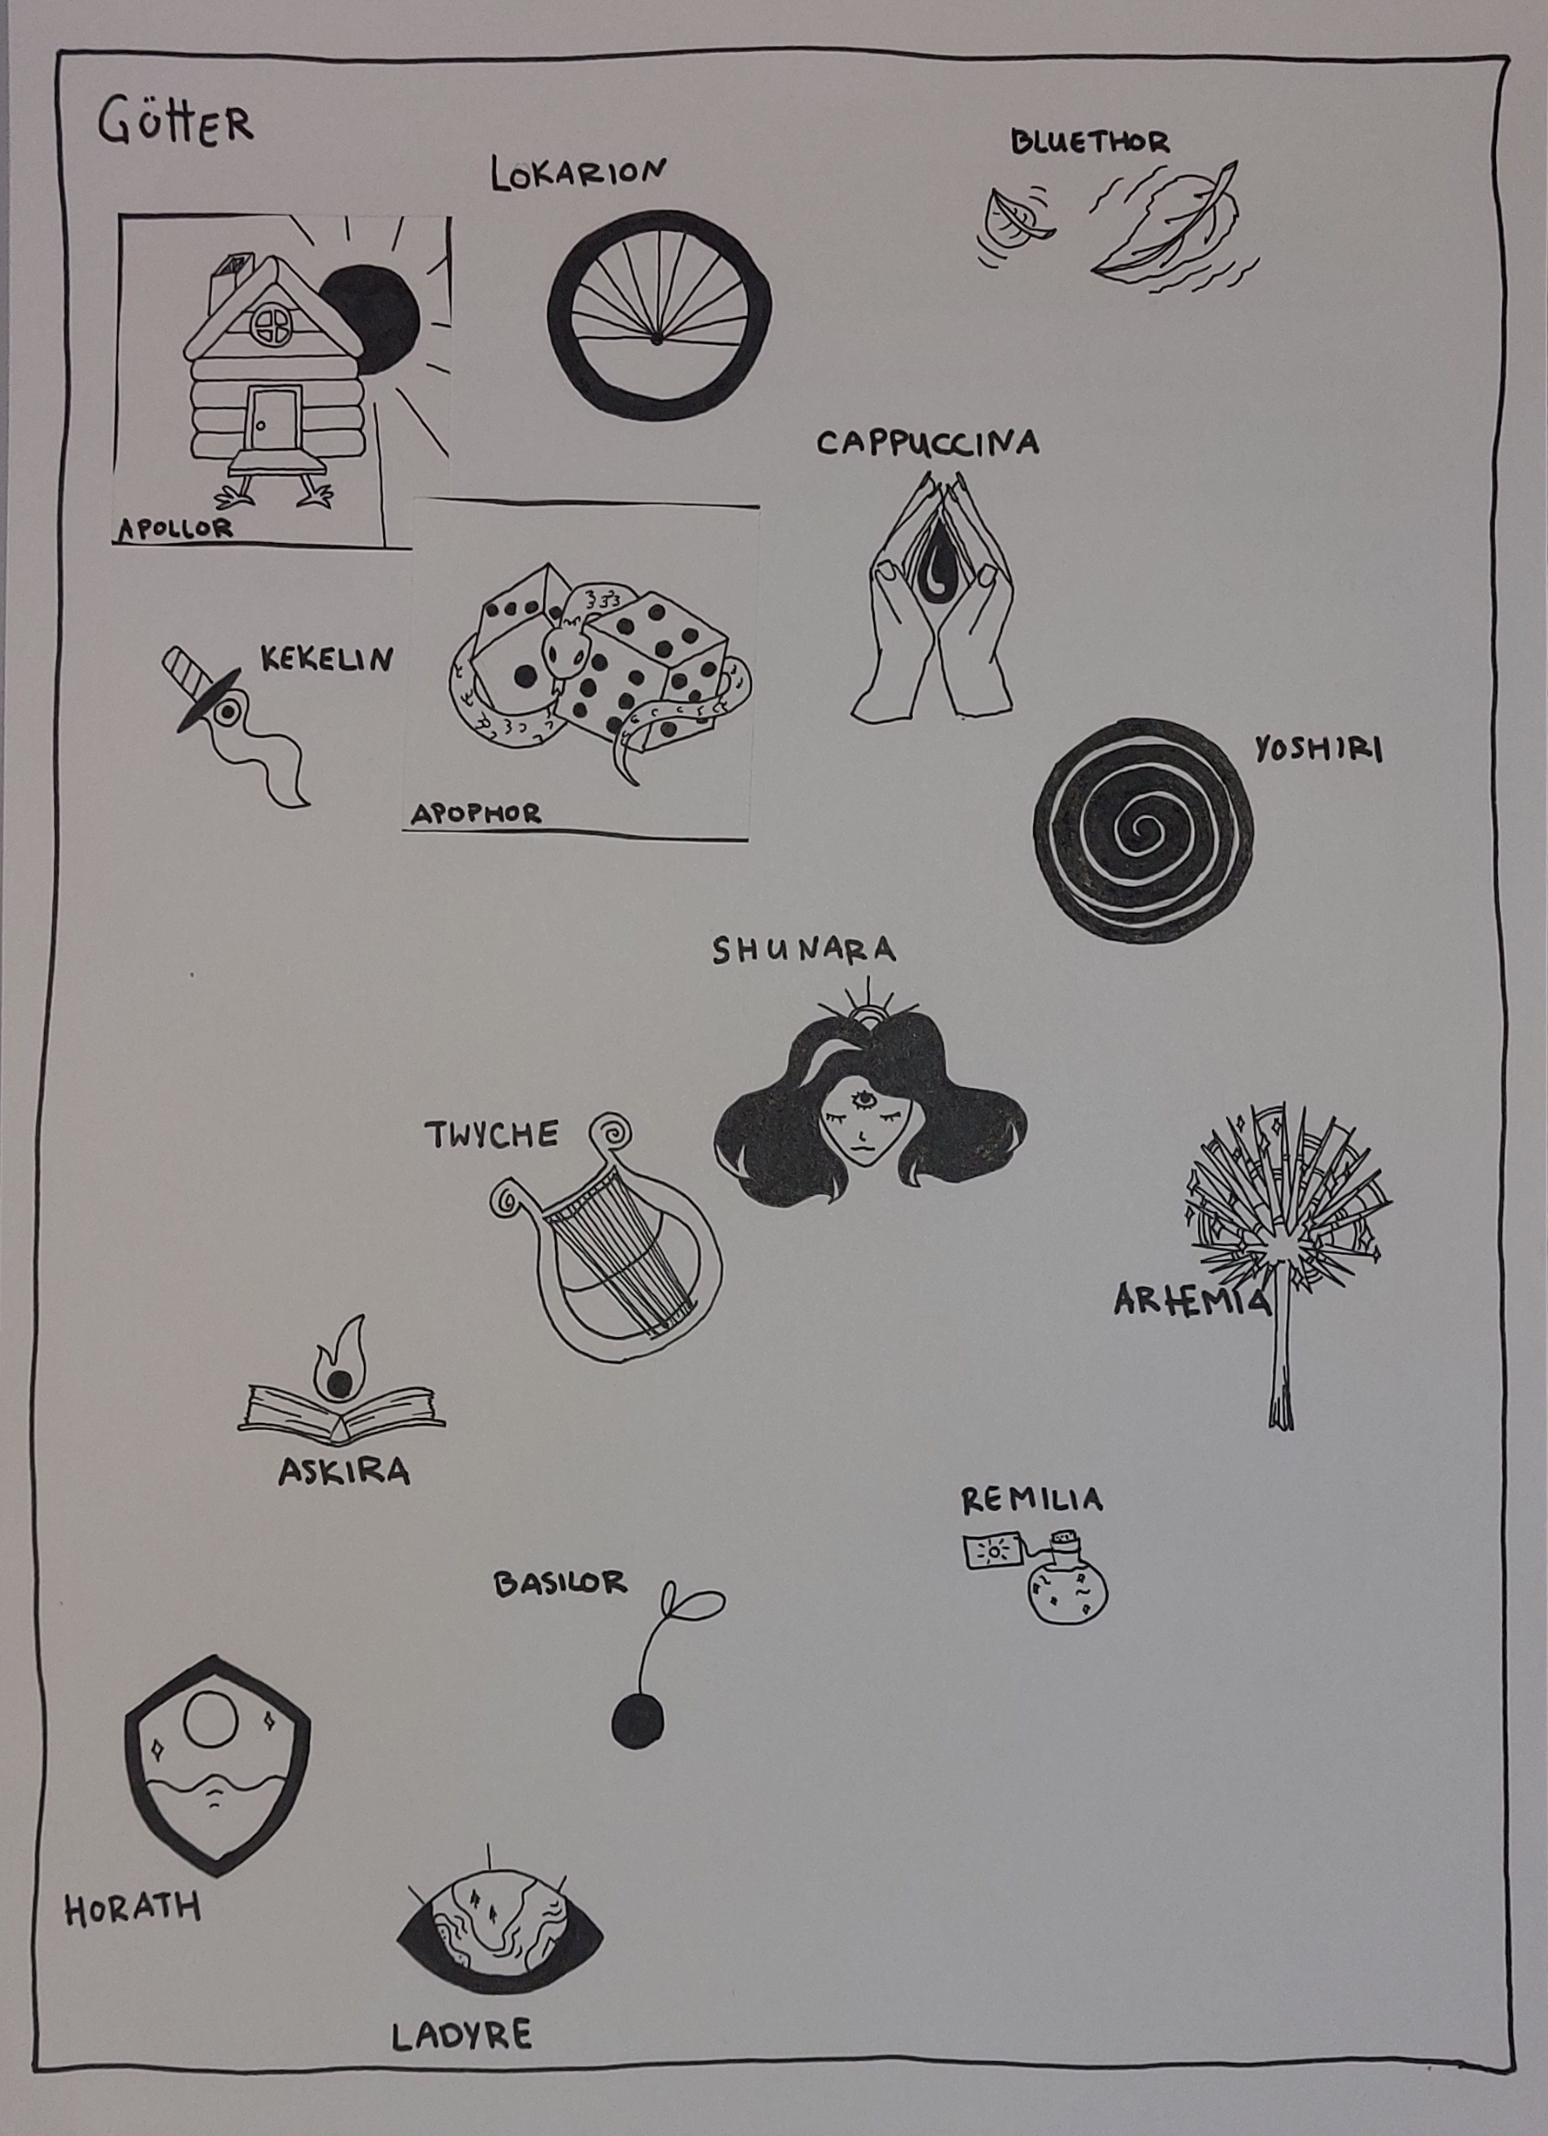 GÖTTER
LOKARION
BLUETHOR
APOLLOR
CAPPUCCINA
KEKELIN
APOPHOR
YOSHIRI
SHUNARA
TWYCHE
ARTEMIA
ASKIRA
REMILIA
BASILOR
HORATH
LADYRE